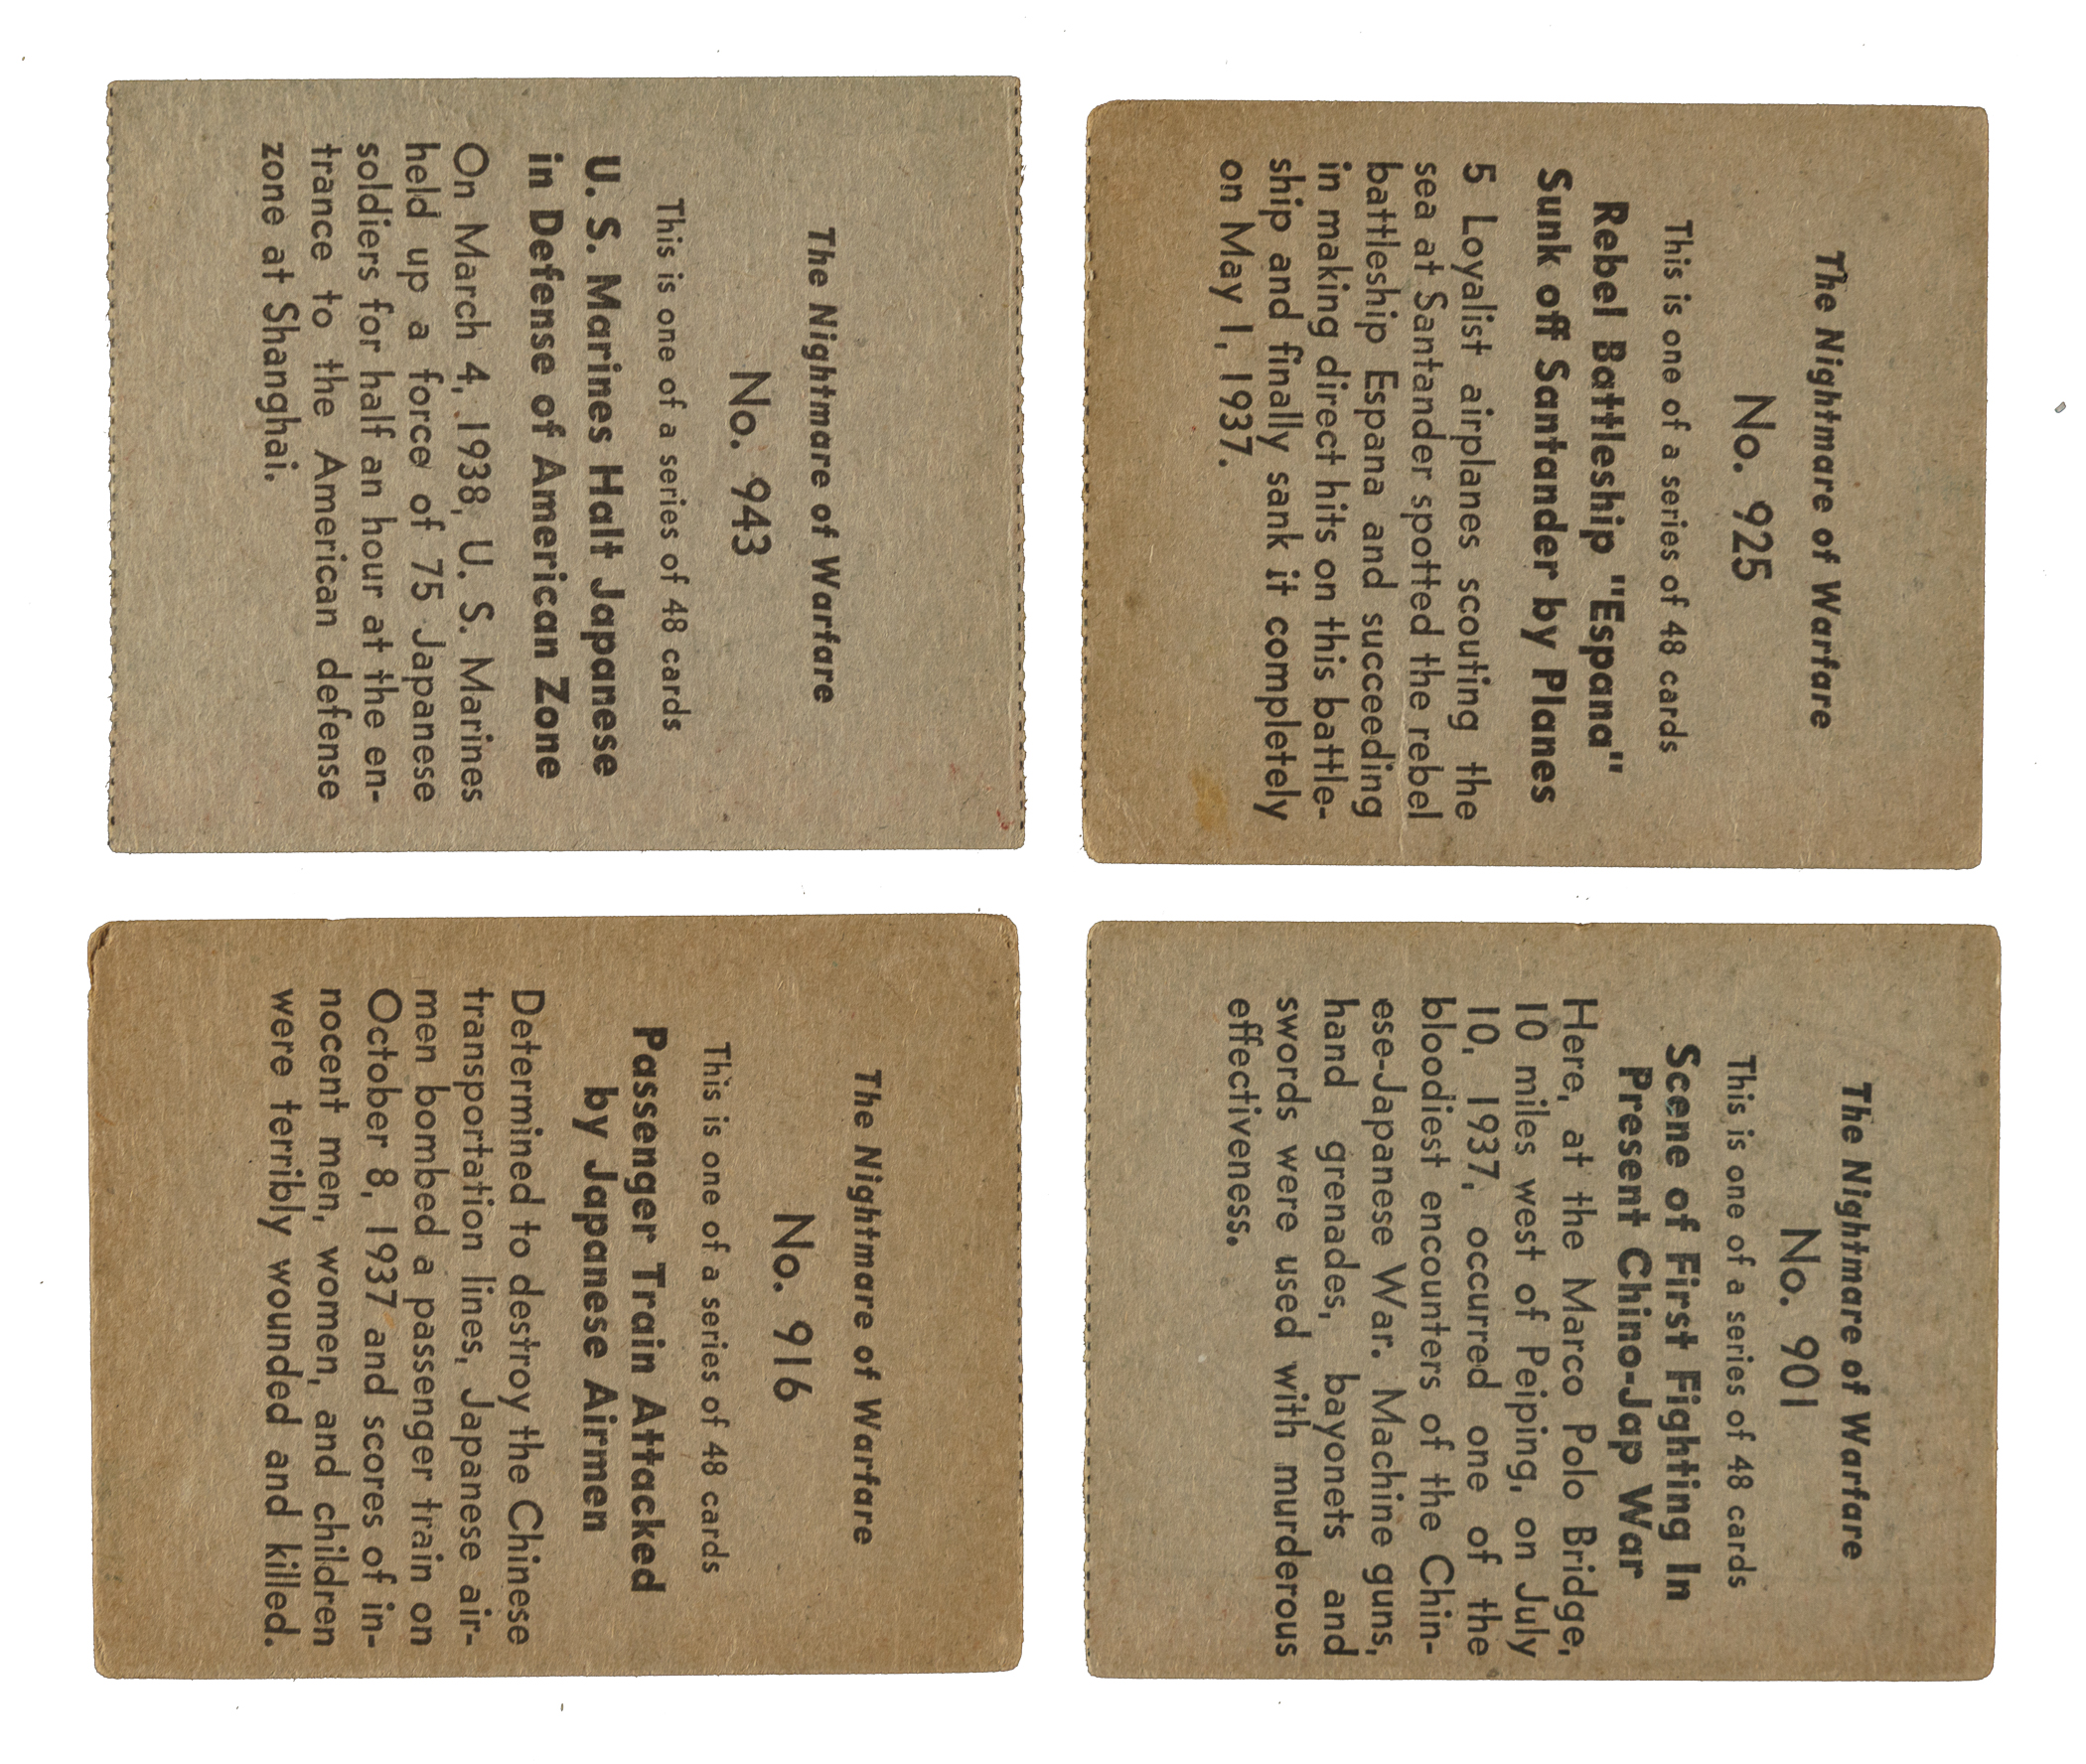 The Nightmare of Warfare
No. 943
This is one of a series of 48 cards
U. S. Marines Halt Japanese
in Defense of American Zone
On March 4, 1938, U. S. Marines
held up a force of 75 Japanese
soldiers for half an hour at the en-
trance to the American defense
zone at Shanghai.
The Nightmare of Warfare
No. 925
This is one of a series of 48 cards
Rebel Battleship "Espana"
Sunk off Santander by Planes
5 Loyalist airplanes scouting the
sea at Santander spotted the rebel
battleship Espana and succeeding
in making direct hits on this battle-
ship and finally sank it completely
on May 1, 1937.
The Nightmare of Warfare
No. 916
This is one of a series of 48 cards
Passenger Train Attacked
by Japanese Airmen
Determined to destroy the Chinese
transportation lines, Japanese air-
men bombed a passenger train on
October 8, 1937 and scores of in-
nocent men, women, and children
were terribly wounded and killed.
The Nightmare of Warfare
No. 901
This is one of a series of 48 cards
Scene of First Fighting In
Present Chino-Jap War
Here, at the Marco Polo Bridge,
10 miles west of Peiping, on July
10, 1937, occurred one of the
bloodiest encounters of the Chin-
ese-Japanese War. Machine guns,
hand grenades, bayonets and
swords were used with murderous
effectiveness.